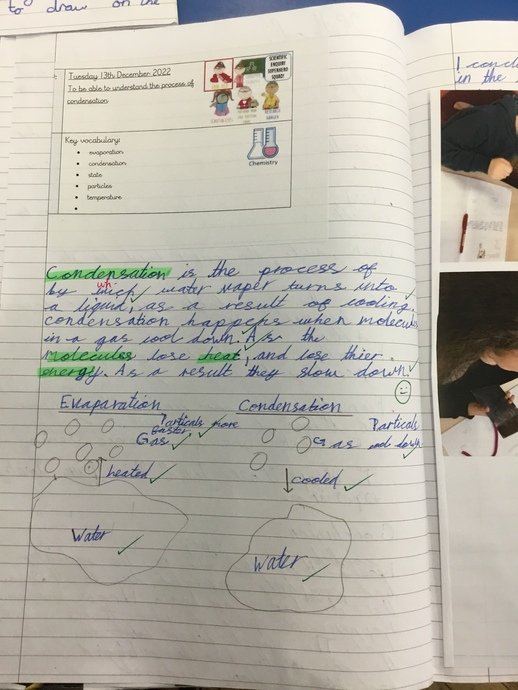 to draw on the
Tuesday 13th December 2022
To be able to understand the process of
condensation
SCIENTIFIC
ENQUIRY
SUPERHERO
SQUAD!
Key vocabulary:
evaporation
condensation
state
particles
temperature
Chemistry
I concl
in the
Condensation is the process of
wh
by wich water vaper turns into
a liquid, as a result of cooling.
condensation happens when molecules
in a gas cool down. As the
molecules lose heat, and lose thier
energy. As a result they slow down.
Evaparation
Condensation
Particals move
faster
Gas
Particals
Gas cool down
heated
cooled
Water
Water